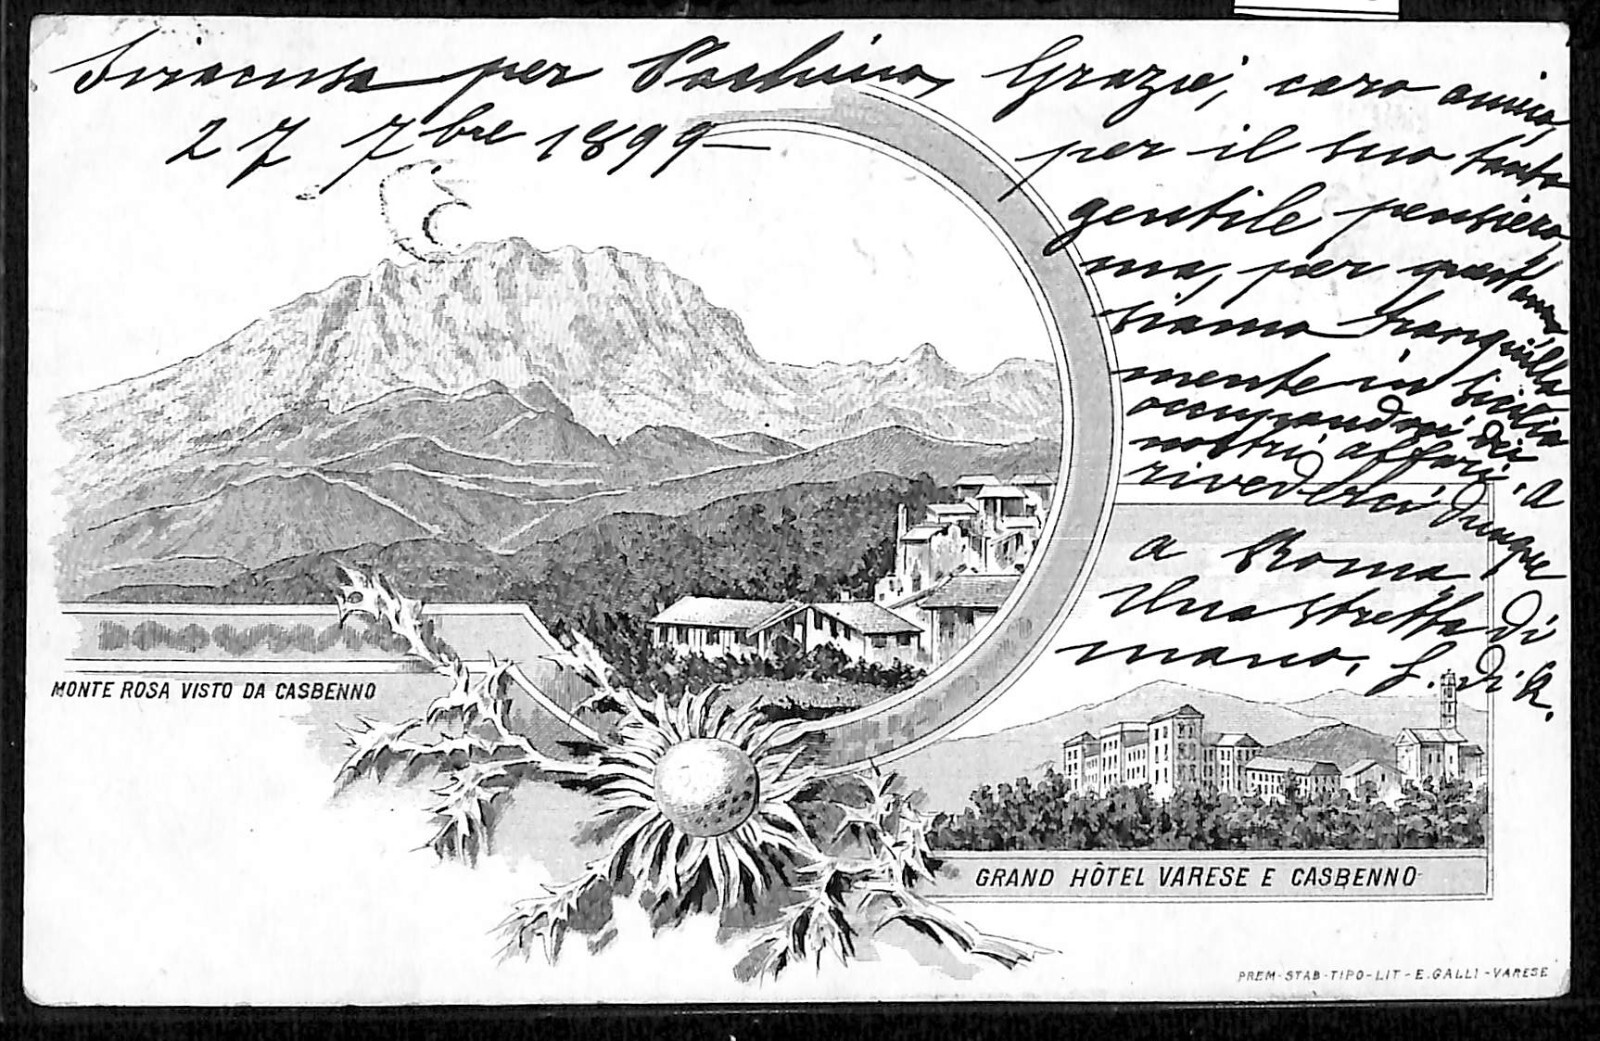 Siracusa per Pachino,
27 7bre 1899 —
Grazie, caro amico,
per il suo tanto
gentile pensiero
ma, per quest'anno
siamo tranquilla
mente in Sicilia
occupandoci dei
nostri affari. a
rivederci dunque
a Roma.
Una stretta di
mano, L. di R.
MONTE ROSA VISTO DA CASBENNO
GRAND HÔTEL VARESE E CASBENNO
PREM-STAB-TIPO-LIT-E.GALLI-VARESE